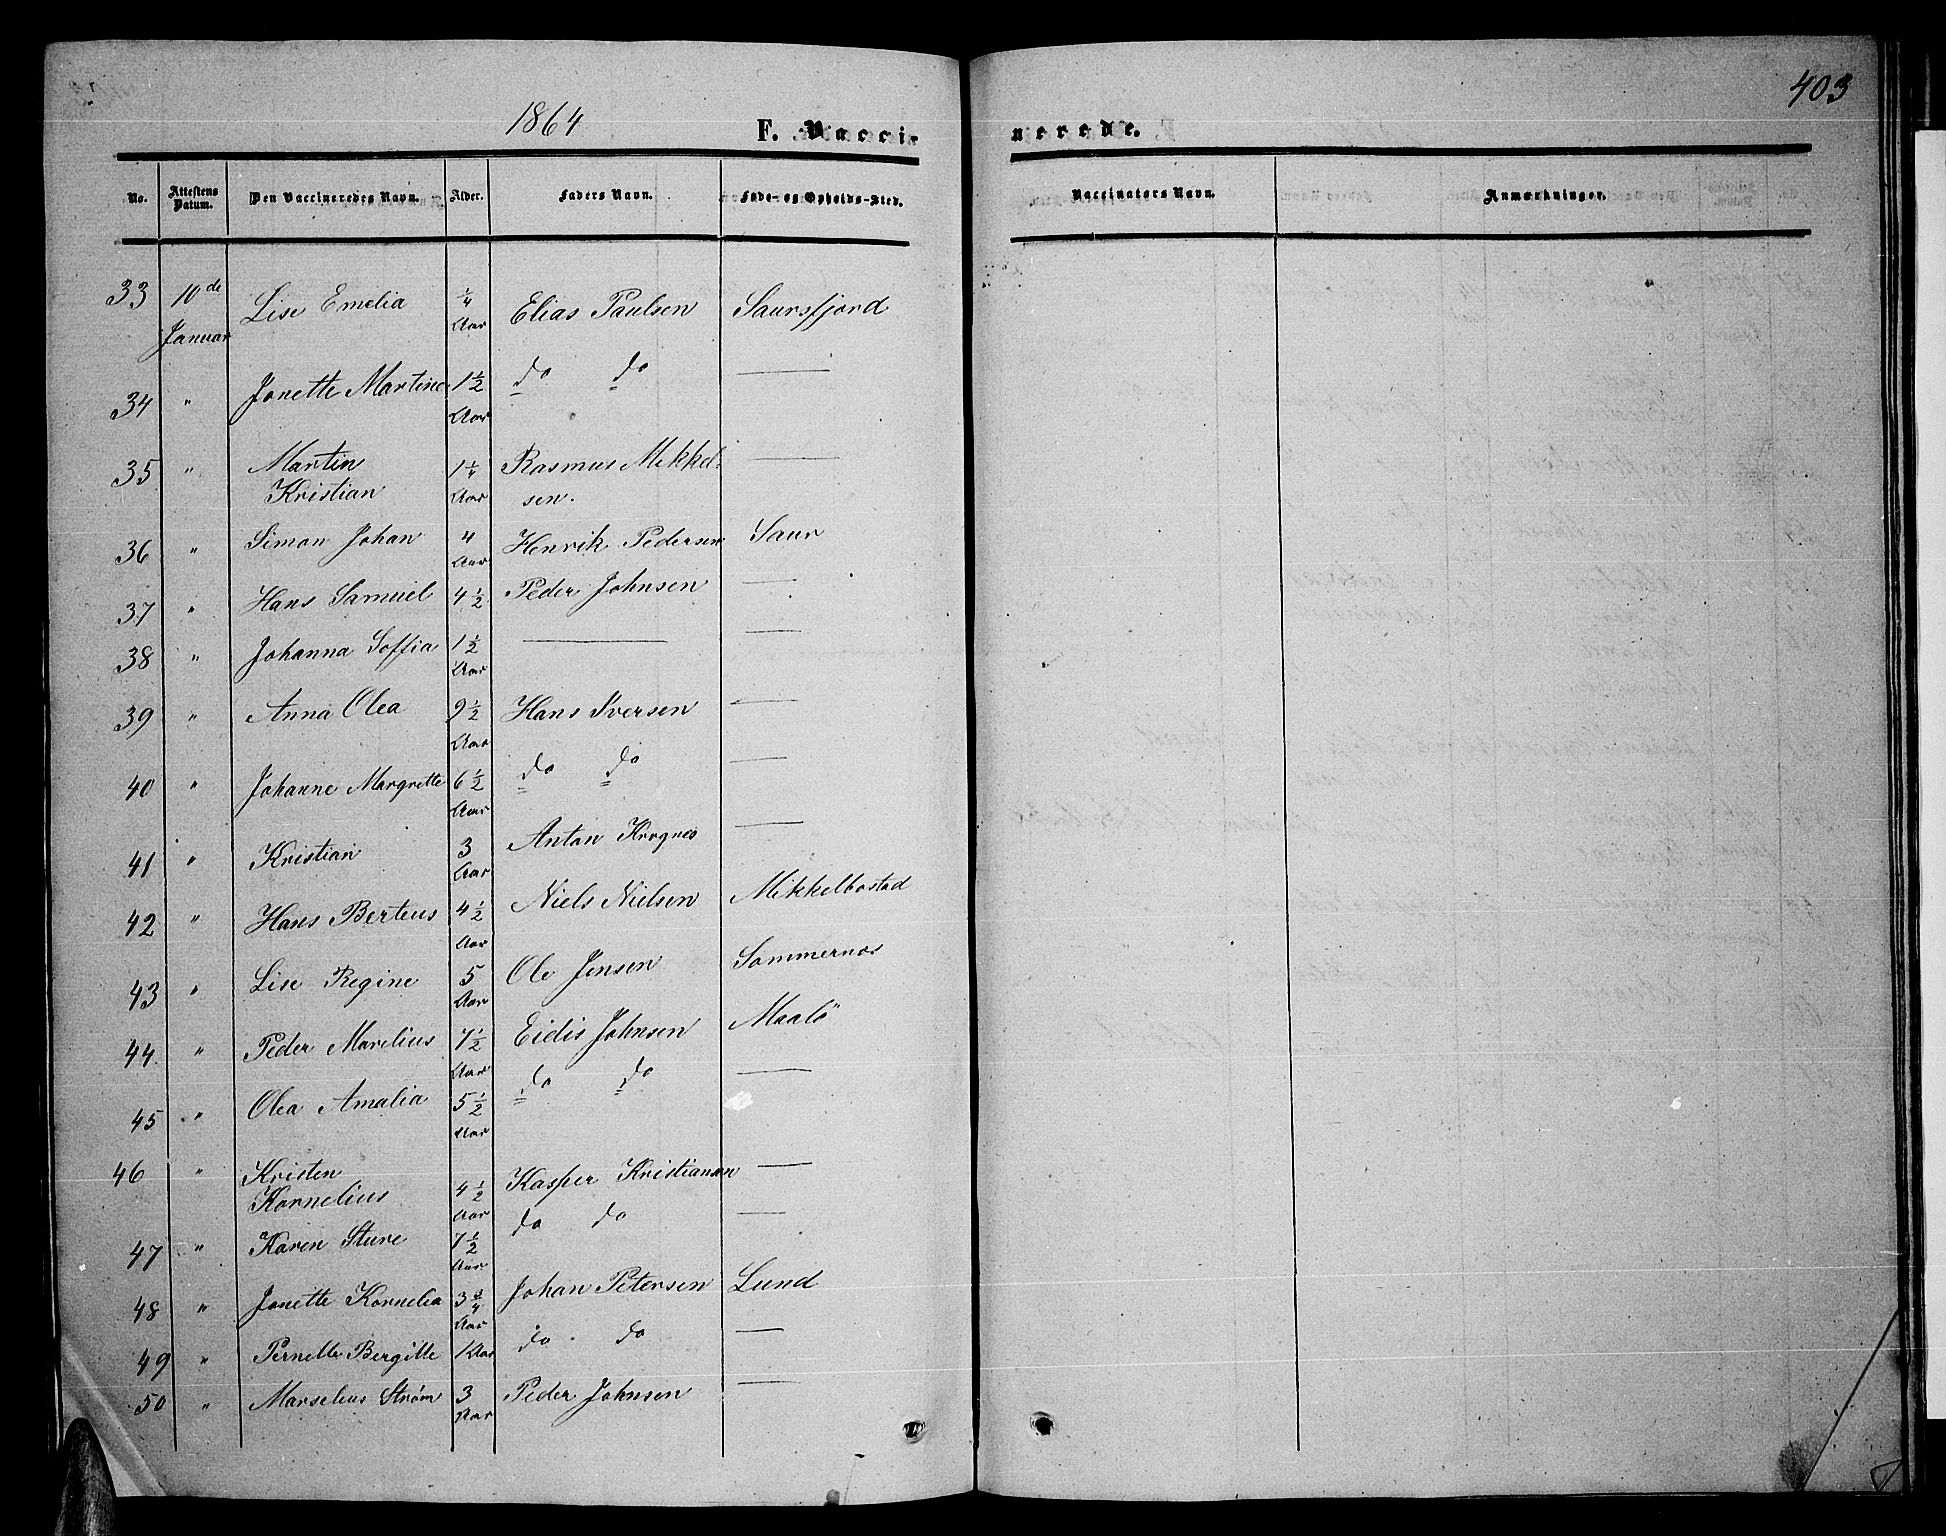 403
1864
F. Vacci-
nerede.
No. Attestens Datum. Den Vaccineredes Navn. Alder. Faders Navn. Føde- og Opholds-Sted. Vaccinators Navn. Anmærkninger.
33 10de Januar Lise Emelia 1/4 Aar Elias Paulsen Saursfjord
34 " Jonette Martine 1 1/2 Aar do do —
35 " Martin Kristian 1 1/4 Aar Rasmus Mikkelsen. —
36 " Simon Johan 4 Aar Henrik Pedersen Saur
37 " Hans Samuel 4 1/2 Peder Johnsen —
38 " Johanna Soffia 1 1/2 Aar — —
39 " Anna Olea 9 1/2 Aar Hans Iversen —
40 " Johanne Margrette 6 1/2 Aar do do —
41 " Kristian 3 Aar Anton —
42 " Hans Berteus 4 1/2 Aar Niels Nielsen Mikkelbostad
43 " Lise Regine 5 Aar Ole Jensen Sommernæs
44 " Peder Marelius 7 1/2 Aar Eidis Johnsen Maalö
45 " Olea Amalia 5 1/2 Aar do do —
46 " Kristen Kornelius 4 1/2 Aar Kasper Kristiansen —
47 " Karen Sture 7 1/2 Aar do do —
48 " Jonette Kornelia 3 3/4 Aar Johan Petersen Lund
49 " Pernelle Bergitte 1 Aar do do —
50 " Marselius Strøm 3 Aar Peder Johnsen —